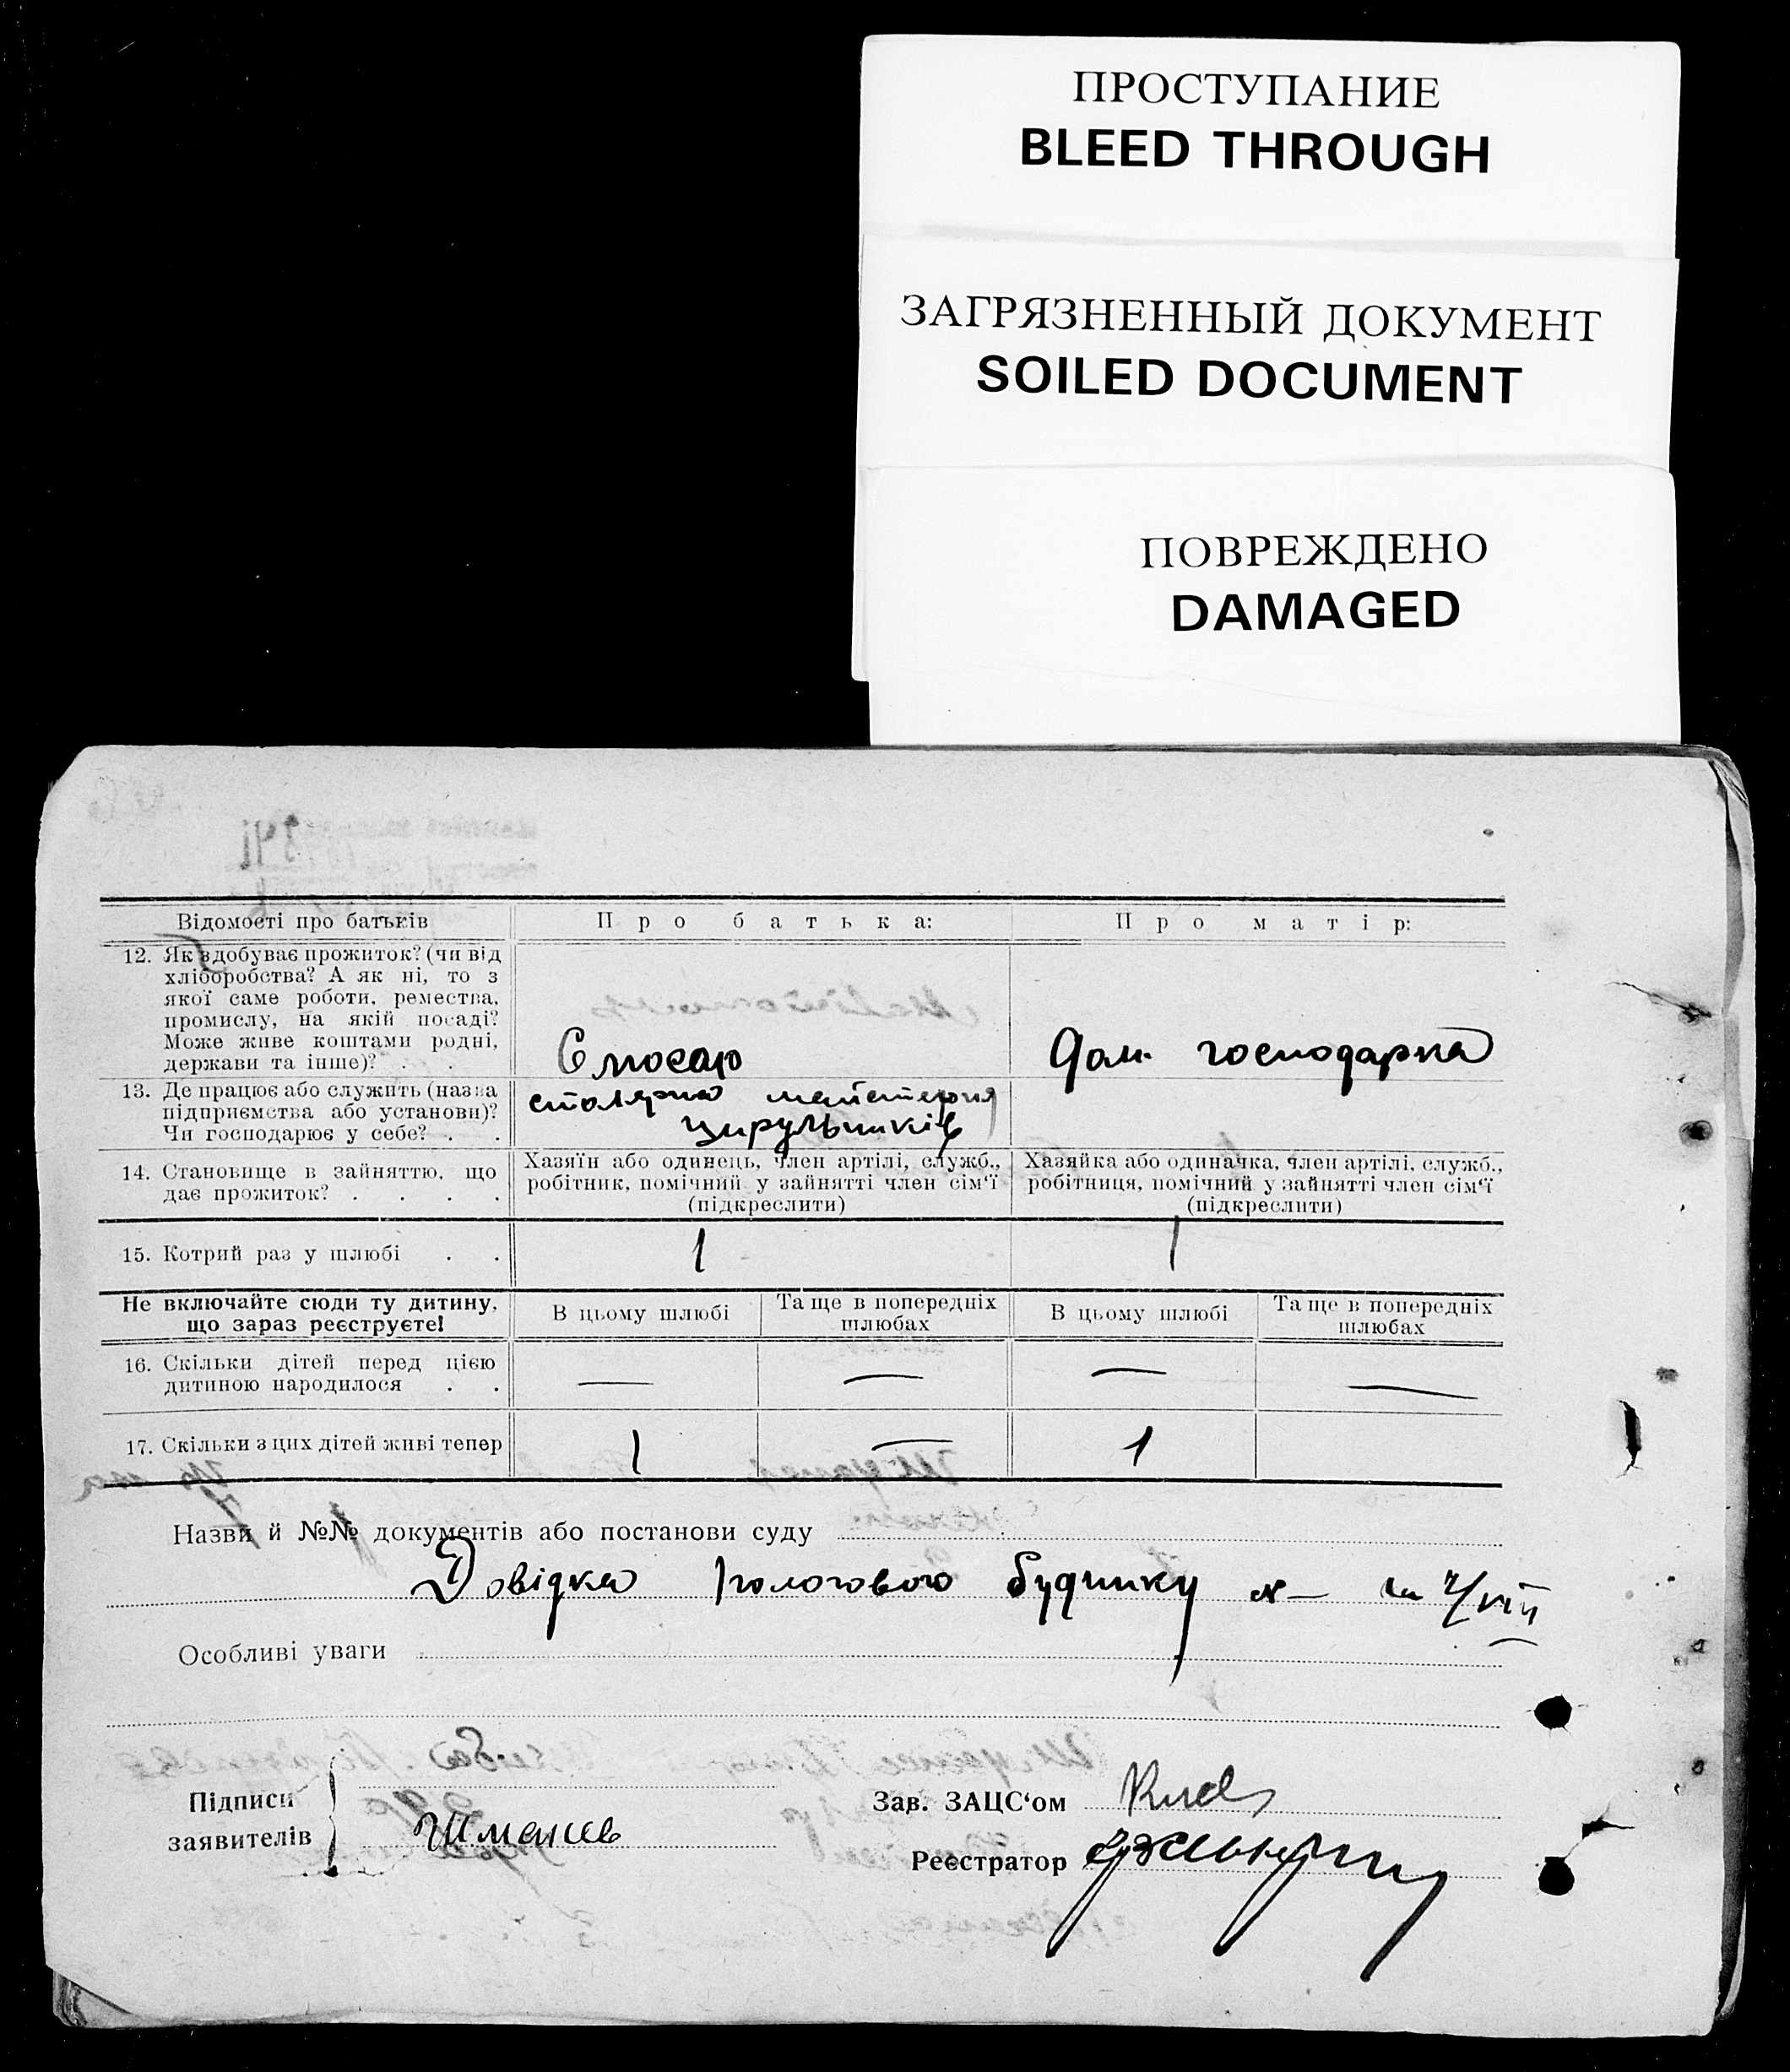 ПРОСТУПАНИЕ
BLEED THROUGH
ЗАГРЯЗНЕННЫЙ ДОКУМЕНТ
SOILED DOCUMENT
ПОВРЕЖДЕНО
DAMAGED
Відомості про батьків
Про батька:
Про матір:
12. Як здобуває прожиток? (чи від
хліборобства? А як ні, то з
якої саме роботи, ремества,
промислу, на якій посаді?
Може живе коштами родні,
держави та інше)? . .
Дом. господарка
13. Де працює або служить (назва
підприємства або установи)?
Чи господарює у себе? . .
столярна майстерня
цирульників
14. Становище в зайняттю, що
дає прожиток? . . . .
Хазяїн або одинець, член артілі, служб.,
робітник, помічний у зайнятті член сім‘ї
(підкреслити)
Хазяйка або одиначка, член артілі, служб.,
робітниця, помічний у зайнятті член сім‘ї
(підкреслити)
15. Котрий раз у шлюбі . .
1
1
Не включайте сюди ту дитину,
що зараз реєструєте!
В цьому шлюбі
Та ще в попередніх
шлюбах
В цьому шлюбі
Та ще в попередніх
шлюбах
16. Скільки дітей перед цією
дитиною народилося . .
—
—
—
—
17. Скільки з цих дітей живі тепер
1
—
1
Назви й №№ документів або постанови суду
Довідка пологового будинку № —
Особливі уваги
Підписи
заявителів
Зав. ЗАЦС‘ом
Реєстратор